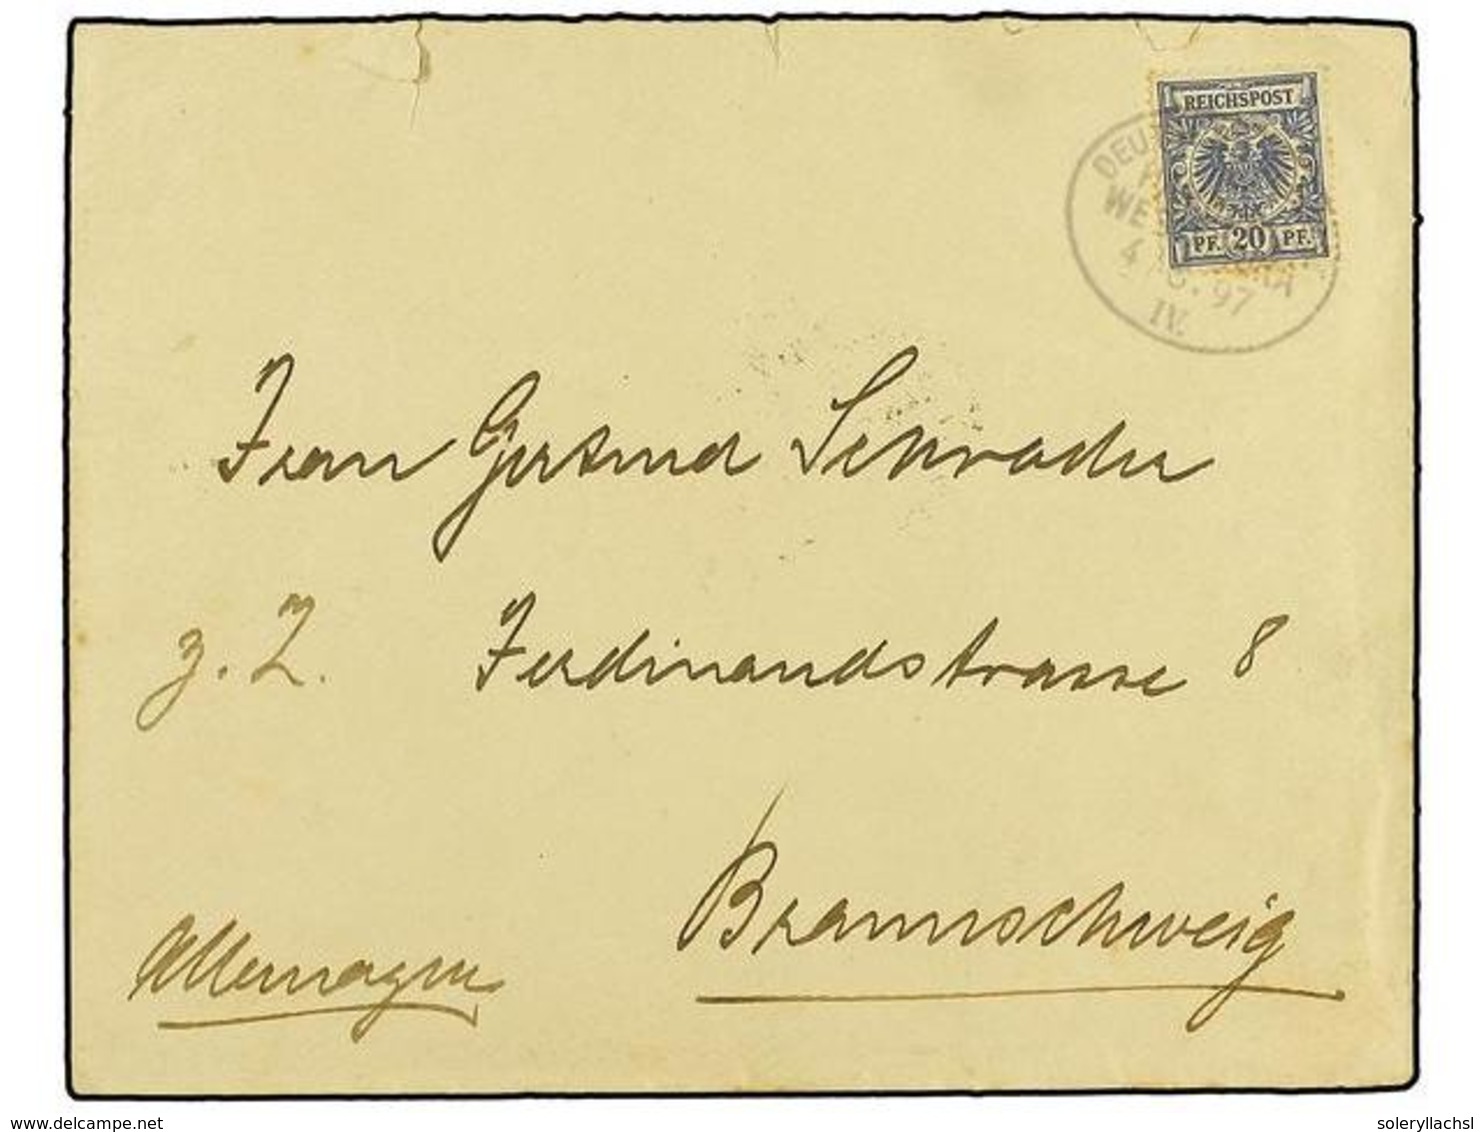 REICHSPOST
PF. 20 PF.
DEU
WE
4 97
IV.
Frau Gertrud Schrader
z. Z. Ferdinandstrasse 8
Braunschweig
Allemagne
delcampe.net
soleryllachsl